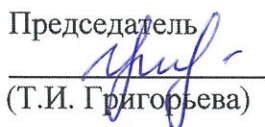 Председатель
(Т.И. Григорьева)